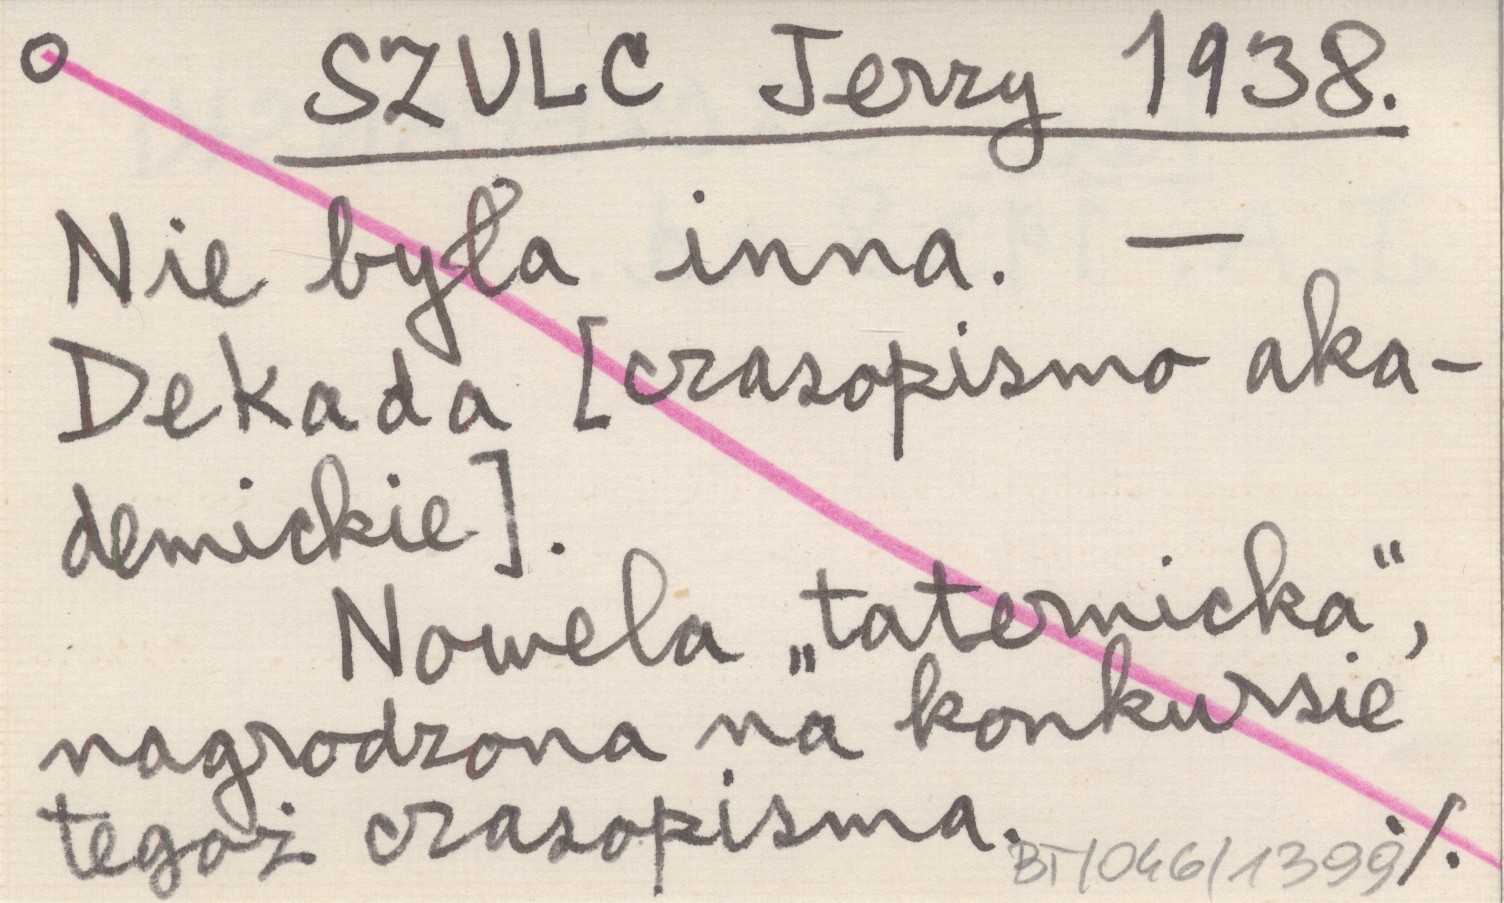 SZULC Jerzy 1938.
Nie była inna. —
Dekada [czasopismo aka-
demickie].
Nowela „taternicka“,
nagrodzona na konkursie
tegoż czasopisma. ./.
BT/046/1399